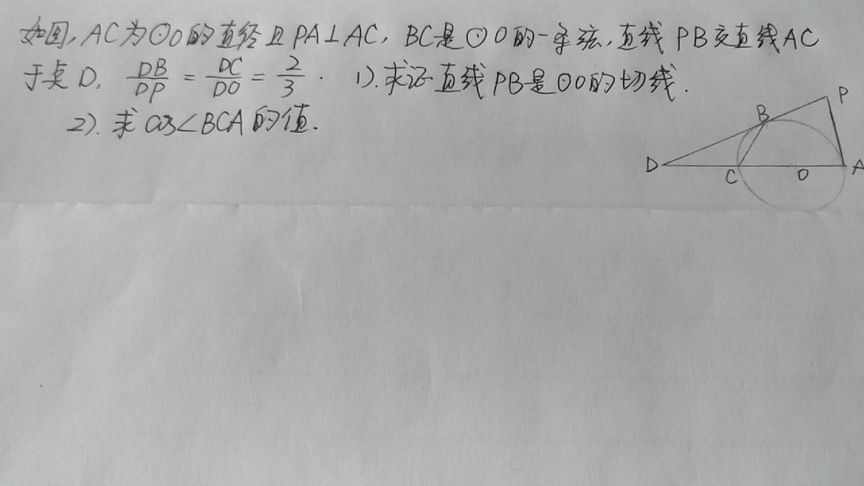 如图,AC为⊙O的直径且PA⊥AC,BC是⊙O的一条弦,直线PB交直线AC
于点D,DB/DP=DC/DO=2/3. 1).求证直线PB是⊙O的切线.
2).求cos∠BCA的值.
P
B
D
C
O
A